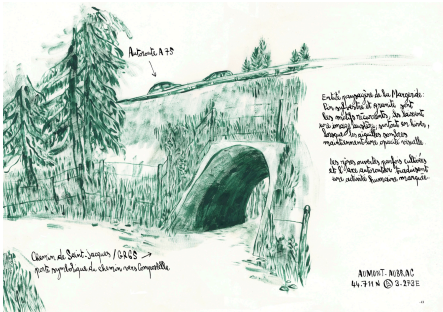 Autoroute A75
Entité paysagère de la Margeride :
Pin sylvestre et granit sont
les motifs récurrents, ils laissent
une image austère, surtout en hiver,
lorsque les aiguilles sombres
maintiennent une opacité visuelle.
Les rives ouvertes parfois cultivées
et l'axe autoroutier traduisent
une activité humaine marquée.
Chemin de Saint-Jacques / GR65
porte symbolique du chemin vers Compostelle
AUMONT-AUBRAC
44.711 N 3.273 E